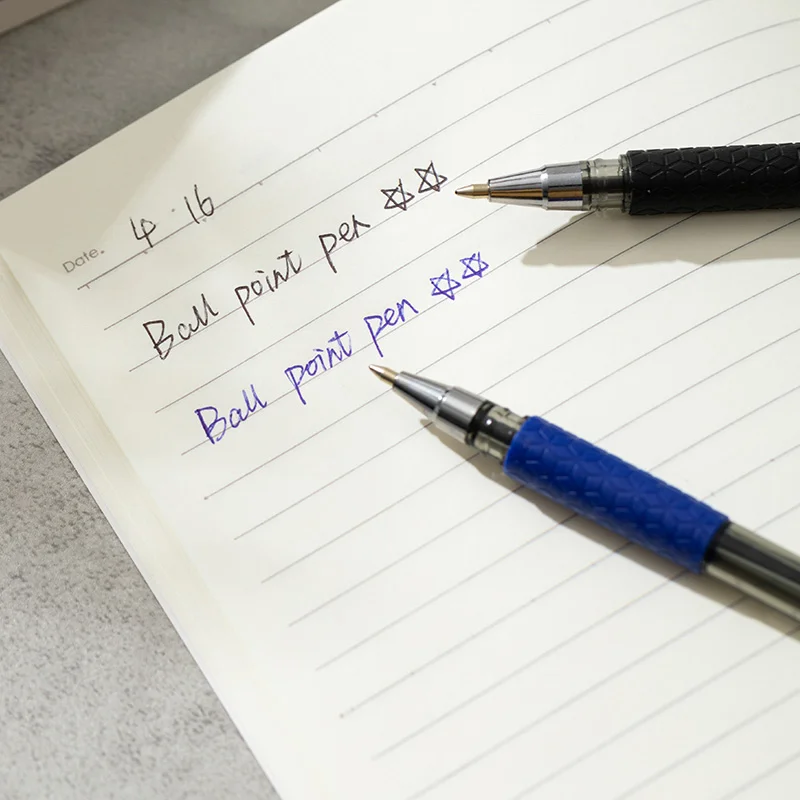 Date. 4·16
Ball point pen ☆☆
Ball point pen ☆☆